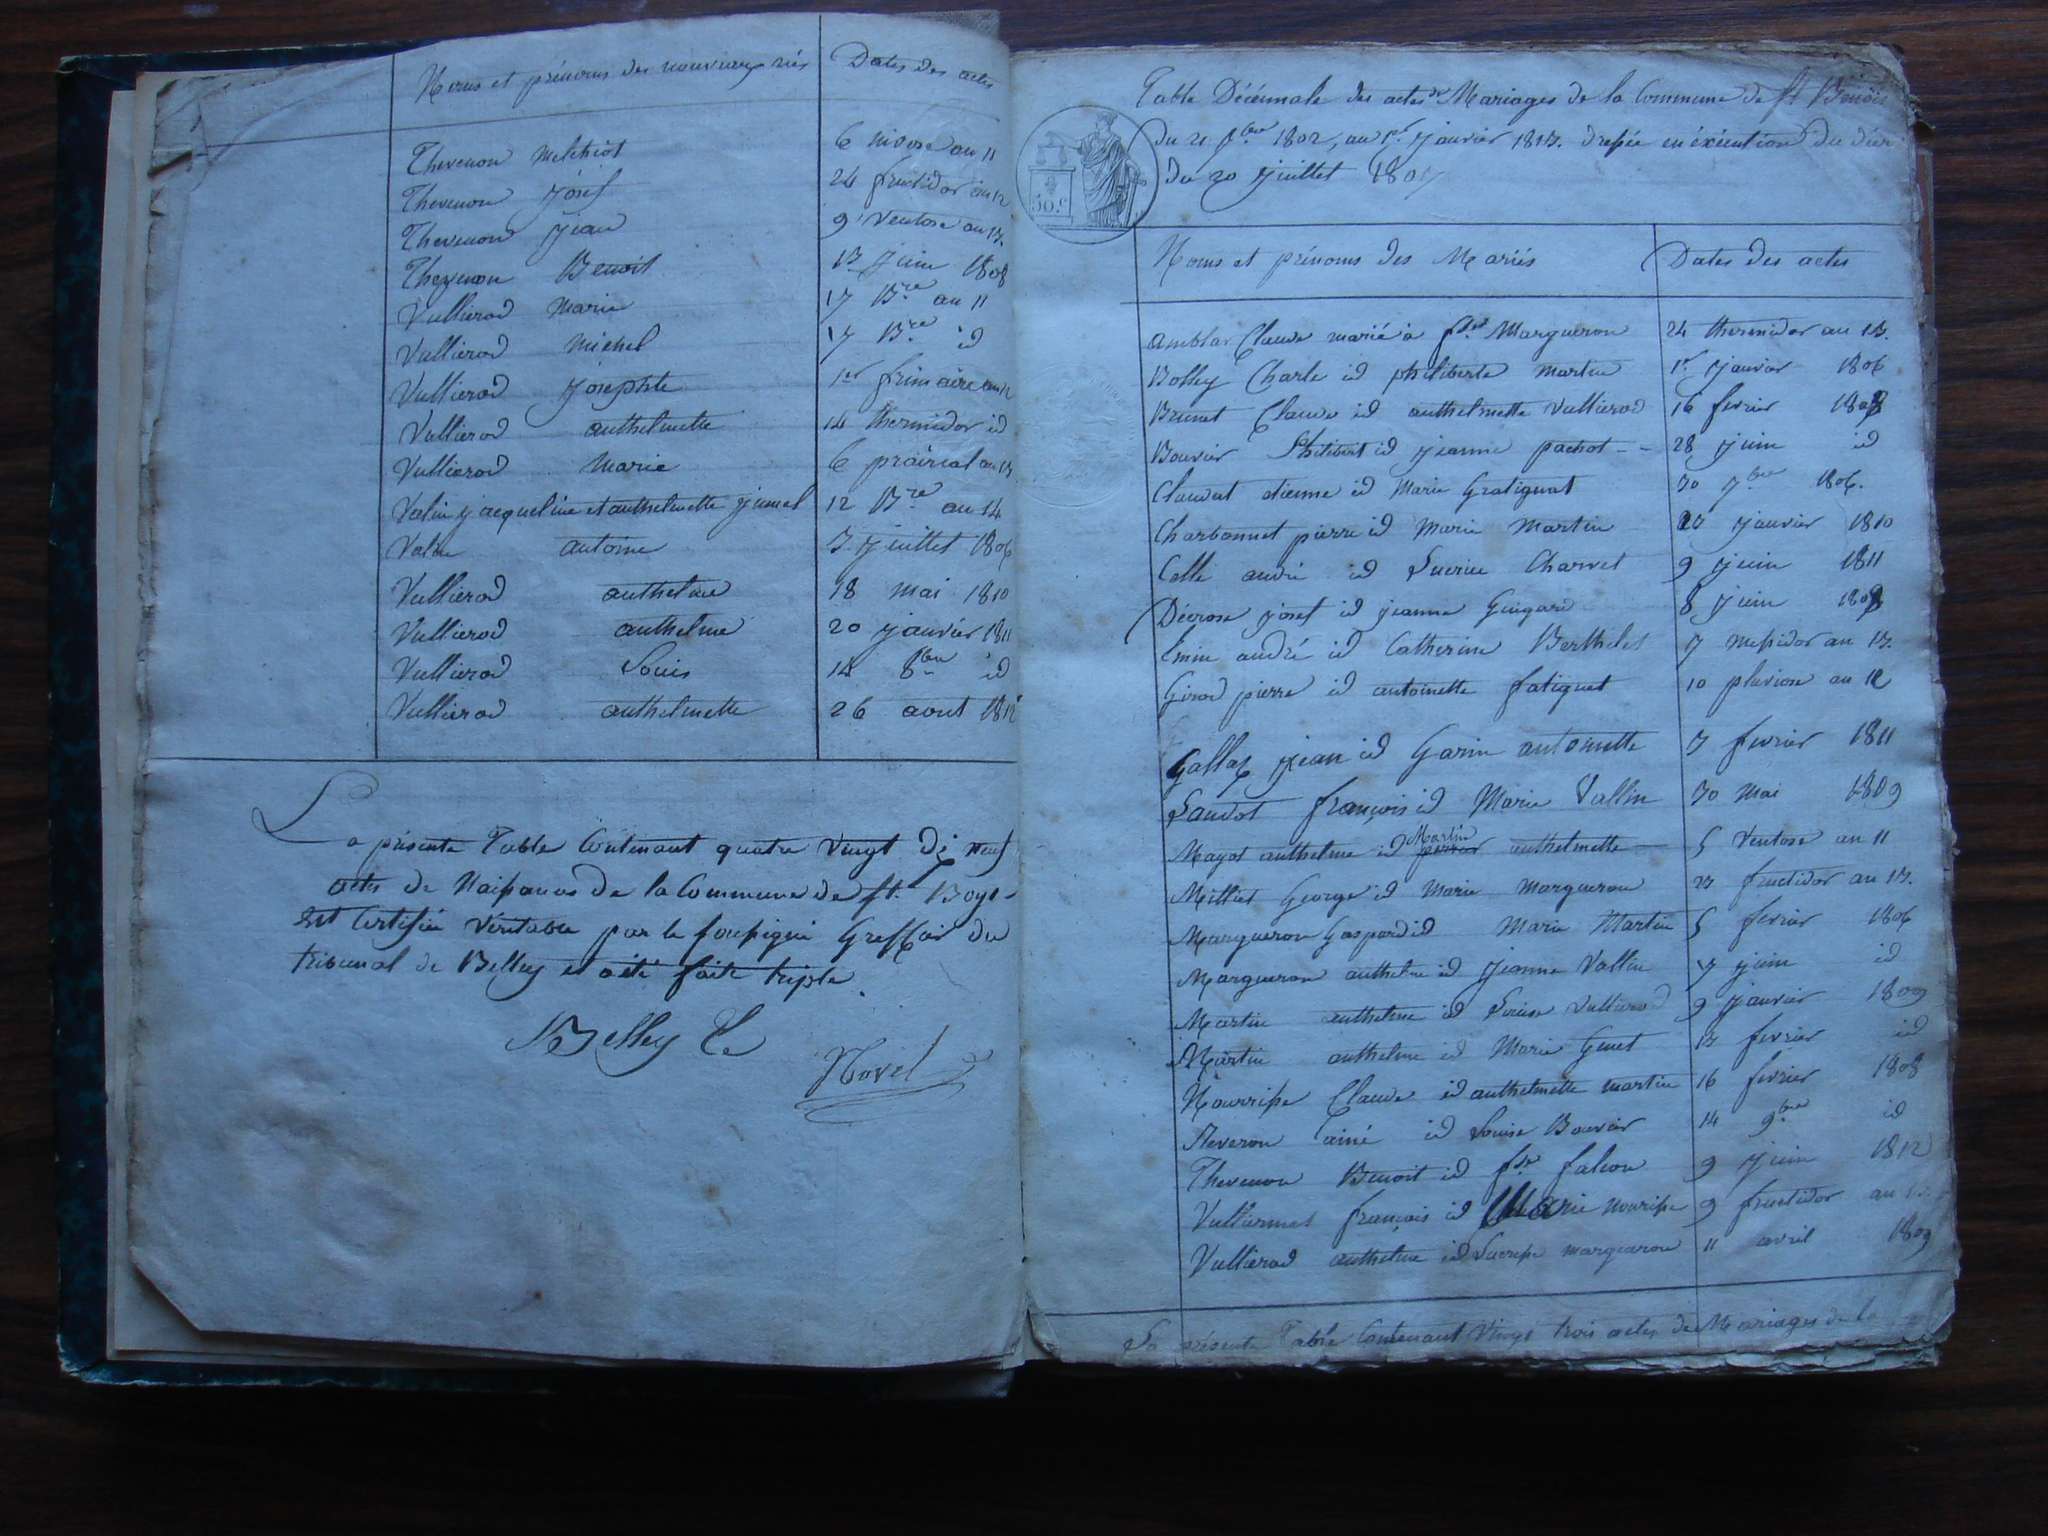 Noms et prénoms des nouveaux nés Dates des actes
Thevenon Melchiot 6 nivose an 11
Thevenon Josef 24 fructidor an 12
Thevenon Jean 9 Ventose an 13.
Thevenon Benoit 13 Juin 1808
Vullierod Marie 17 Bre an 11
Vullierod Michel 17 Bre id
Vullierod Josephte 1er frimaire an 12
Vullierod anthelmette 14 thermidor id
Vullierod Marie 6 prairial an 13
Valin jacqueline et anthelmette jumel 12 Bre an 14
Valin antoine 3 Juillet 1806
Vullierod anthelme 18 mai 1810
Vullierod anthelme 20 janvier 1811
Vullierod Louis 14 8bre id
Vullierod anthelmette 26 aout 1812
La présente Table Contenant quatre vingt dix neuf
actes de Naissances de la Commune de st. Boys
Est Certifiée Véritable par le soussigné Greffier du
tribunal de Belley et a été faite triple.
Belley le
Novel
Table Décennale des actes de Mariages de la Commune de st Benoit
du 21 7bre 1802, au 1er Janvier 1813. dressée en éxécution du décret
du 20 Juillet 1807
50.c
Noms et prénoms des Mariés Dates des actes
Amblar Claude marié à fse Margueron 24 thermidor an 13.
Bolley Charle id philiberte martin 1er Janvier 1806
Brunet Claude id anthelmette Vullierod 16 fevrier 1808
Bouvier Philibert id jeanne pachot -- 28 Juin id
Claudat etienne id Marie Gratignat 30 7bre 1806.
Charbonnet pierre id Marie Martin 23 Janvier 1810
Collé andré id Lucrice Charvet 9 Juin 1811
Décrose josef id jeanne Guigard 8 Juin 1809
Emin andré id Catherine Berthelet 7 messidor an 13.
Girod pierre id antoinette fatiguet 10 pluviose an 12
Gallay Jean id Garin antoinette 7 fevrier 1811
Landot françois id Marie Vallin 30 Mai 1809
Martin
Mayot anthelme id anthelmette 5 Ventose an 11
Milliet George id Marie Margueron 23 fructidor an 13.
Margueron Gaspard id Marie Martin 5 fevrier 1806
Margueron anthelme id Jeanne Vallin 17 juin id
Martin anthelme id Louise Vullierod 9 Janvier 1809
Martin anthelme id Marie Genet 13 fevrier id
Nourrisse Claude id anthelmette martin 16 fevrier 1808
Reveron ainé id Louise Bouvier 14 9bre id
Thevenon Benoit id fse falcon 9 Juin 1812
Vulliermet françois id Marie Nourisse 9 fructidor an
Vullierod anthelme id Lucresse margueron 11 avril 1809
La présente Table Contenant Vingt trois actes de Mariages de la